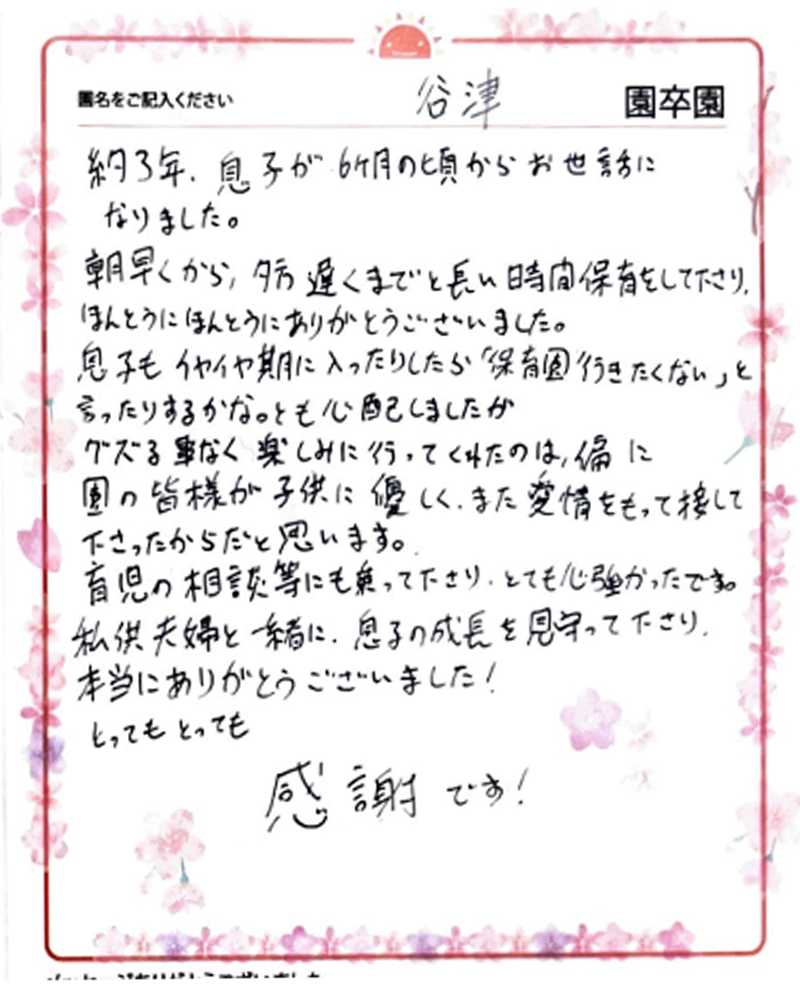 園名をご記入ください 谷津 園卒園
約3年、息子が6ヶ月の頃からお世話に
なりました。
朝早くから、夕方遅くまでと長い時間保育をして下さり、
ほんとうにほんとうにありがとうございました。
息子もイヤイヤ期に入ったりしたら「保育園行きたくない」と
言ったりするかな。とも心配しましたが
グズる事なく楽しみに行ってくれたのは、偏に
園の皆様が子供に優しく、また愛情をもって接して
下さったからだと思います。
育児の相談等にも乗って下さり、とても心強かったです。
私供夫婦と一緒に、息子の成長を見守って下さり、
本当にありがとうございました!
とってもとっても
感謝です!